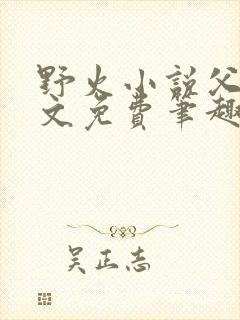 野火小说父
文免费笔趣
吴正志